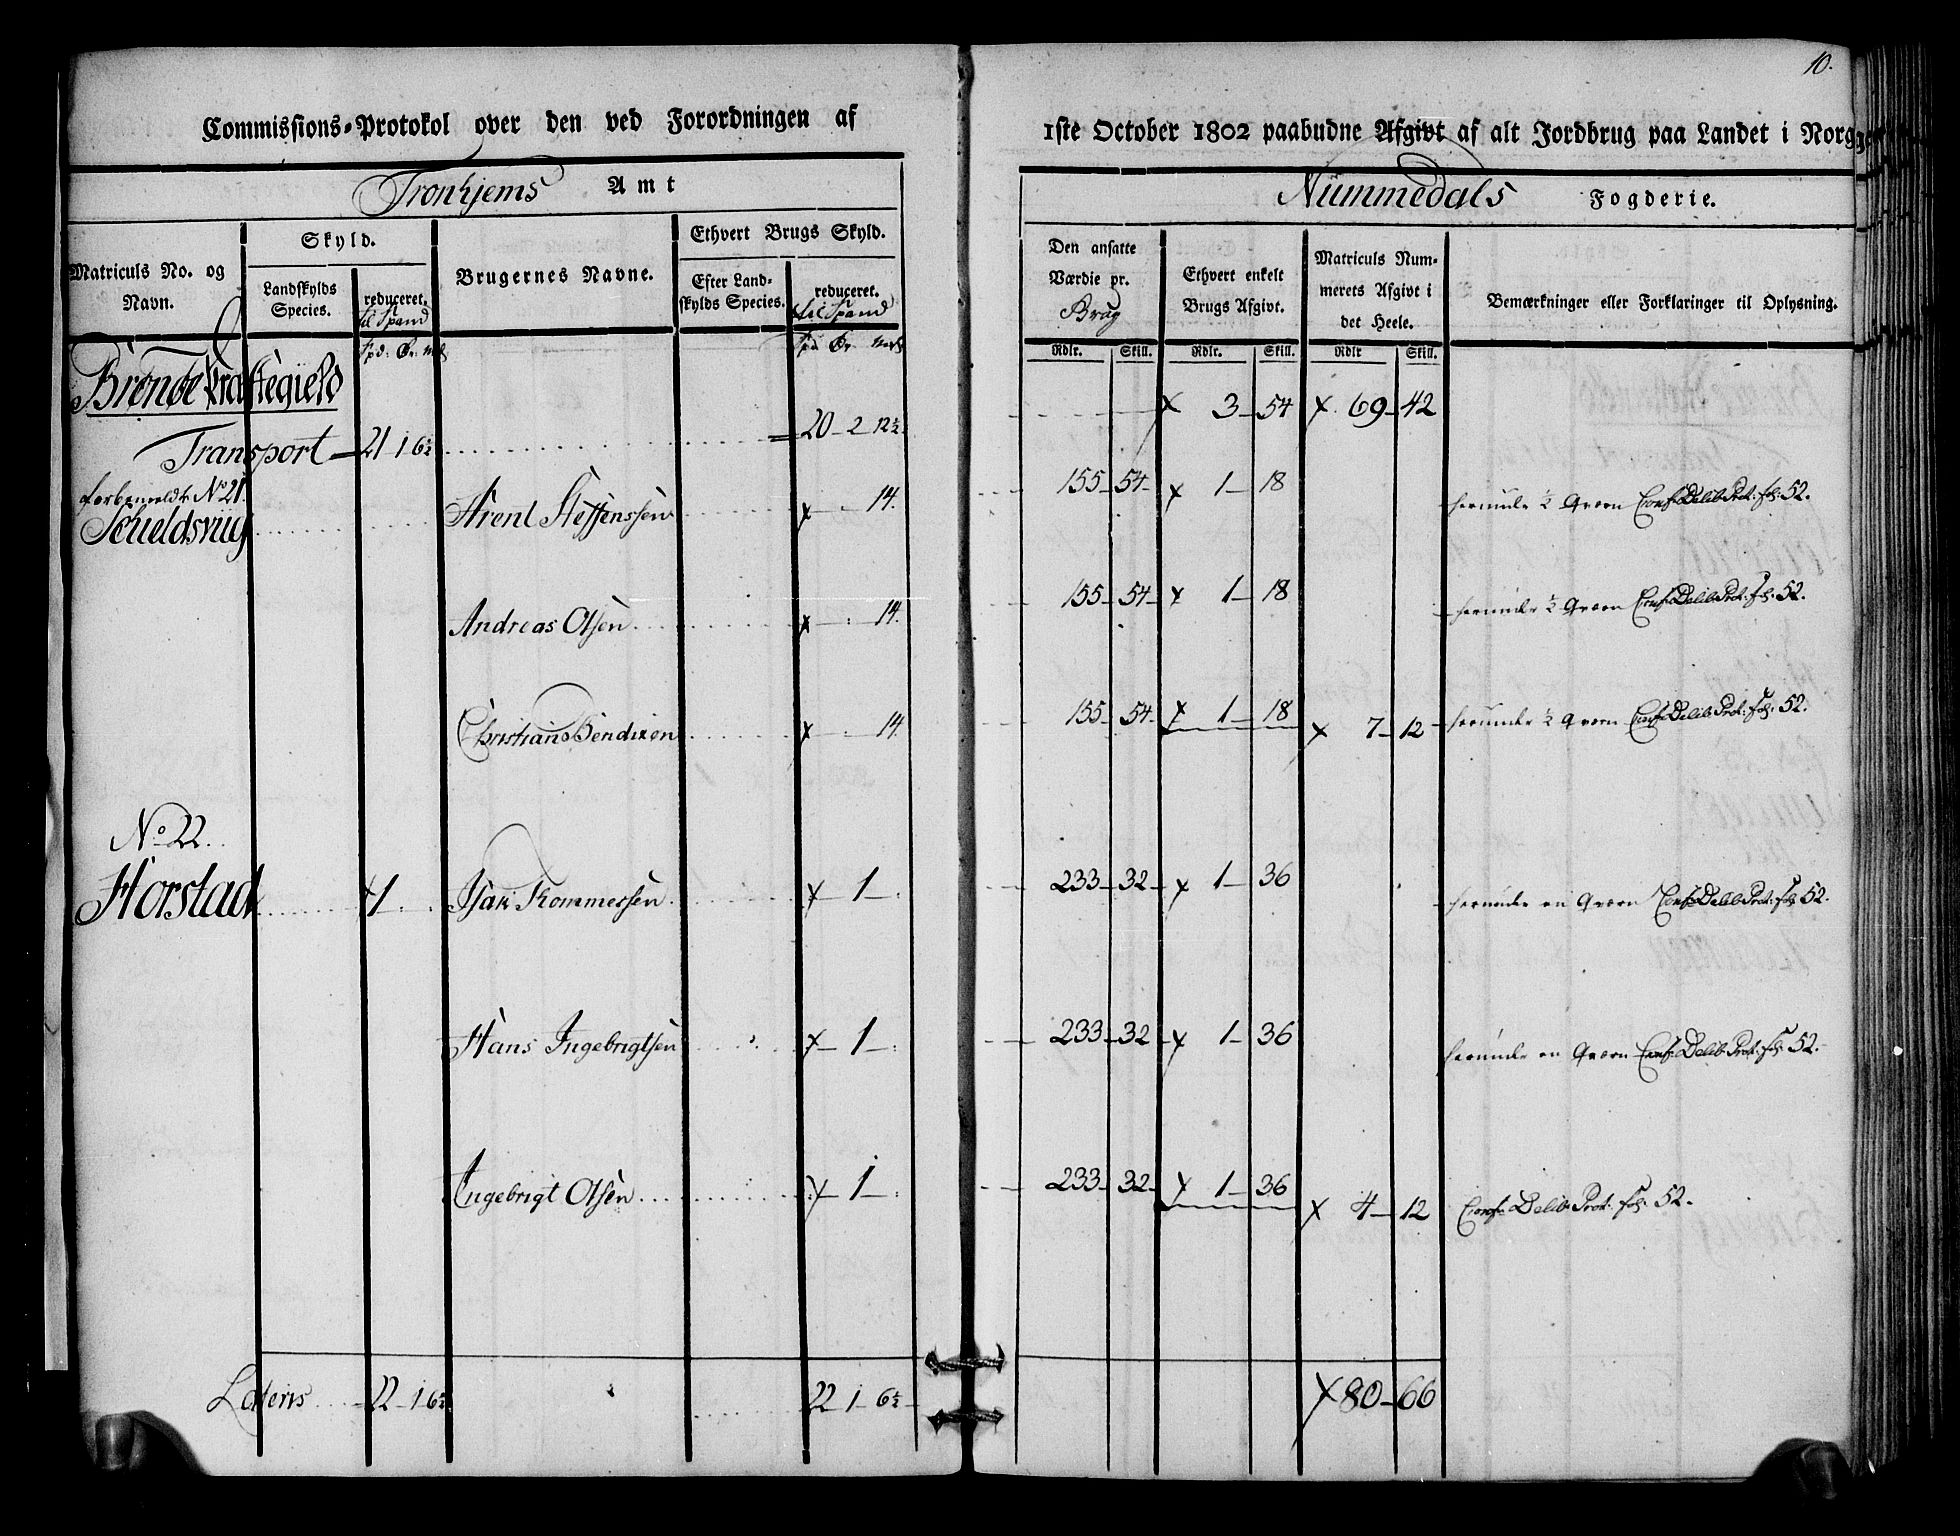 10.
Commissions-Protokol over den ved Forordningen af 1ste October 1802 paabudne Afgivt af alt Jordbrug paa Landet i Norge
Tronhjems Amt
Nummedals Fogderie.
Matriculs No. og Navn.
Skyld.
Landskylds Species.
reduceret.
til Spand
Brugernes Navne.
Ethvert Brugs Skyld.
Efter Landskylds Species.
reduceret.
til Spand
Den ansatte Værdie pr. Brug
Ethvert enkelt Brugs Afgivt.
Matriculs Nummerets Afgivt i det Heele.
Bemærkninger eller Forklaringer til Oplysning.
Spd. Ør. mk
Spd Ør mk
Rdlr. Skill. Rdlr. Skill. Rdlr Skill.
Brönöe Præstegield
Transport 21 1 6½ 20 2 12½ x 3 54 x 69 42
forbemeldte No 21.
Schieldsviig Arent Steffenssen x 14. 155 54 x 1 18 herunder ½ Qværn Conf. Delib. Prot: fol: 52.
Andreas Olsen x 14. 155 54 x 1 18 herunder ½ Qværn Conf. Delib. Prot: fol: 52.
Christian Bendixen x 14. 155 54 x 1 18 x 7 12 herunder ½ Qværn Conf. Delib. Prot: fol: 52.
No 22.
Horstad x 1 Isak Kommersen x 1 233 32 x 1 36 herunder en Qværn Conf. Delib. Prot: fol: 52.
Hans Ingebrigtsen x 1 233 32 x 1 36 herunder en Qværn Conf. Delib. Prot: fol: 52.
Ingebrigt Olsen x 1 233 32 x 1 36 x 4 12 Conf. Delib. Prot: fol: 52.
Lateris 22 1 6½ 22 1 6½ x 80 66